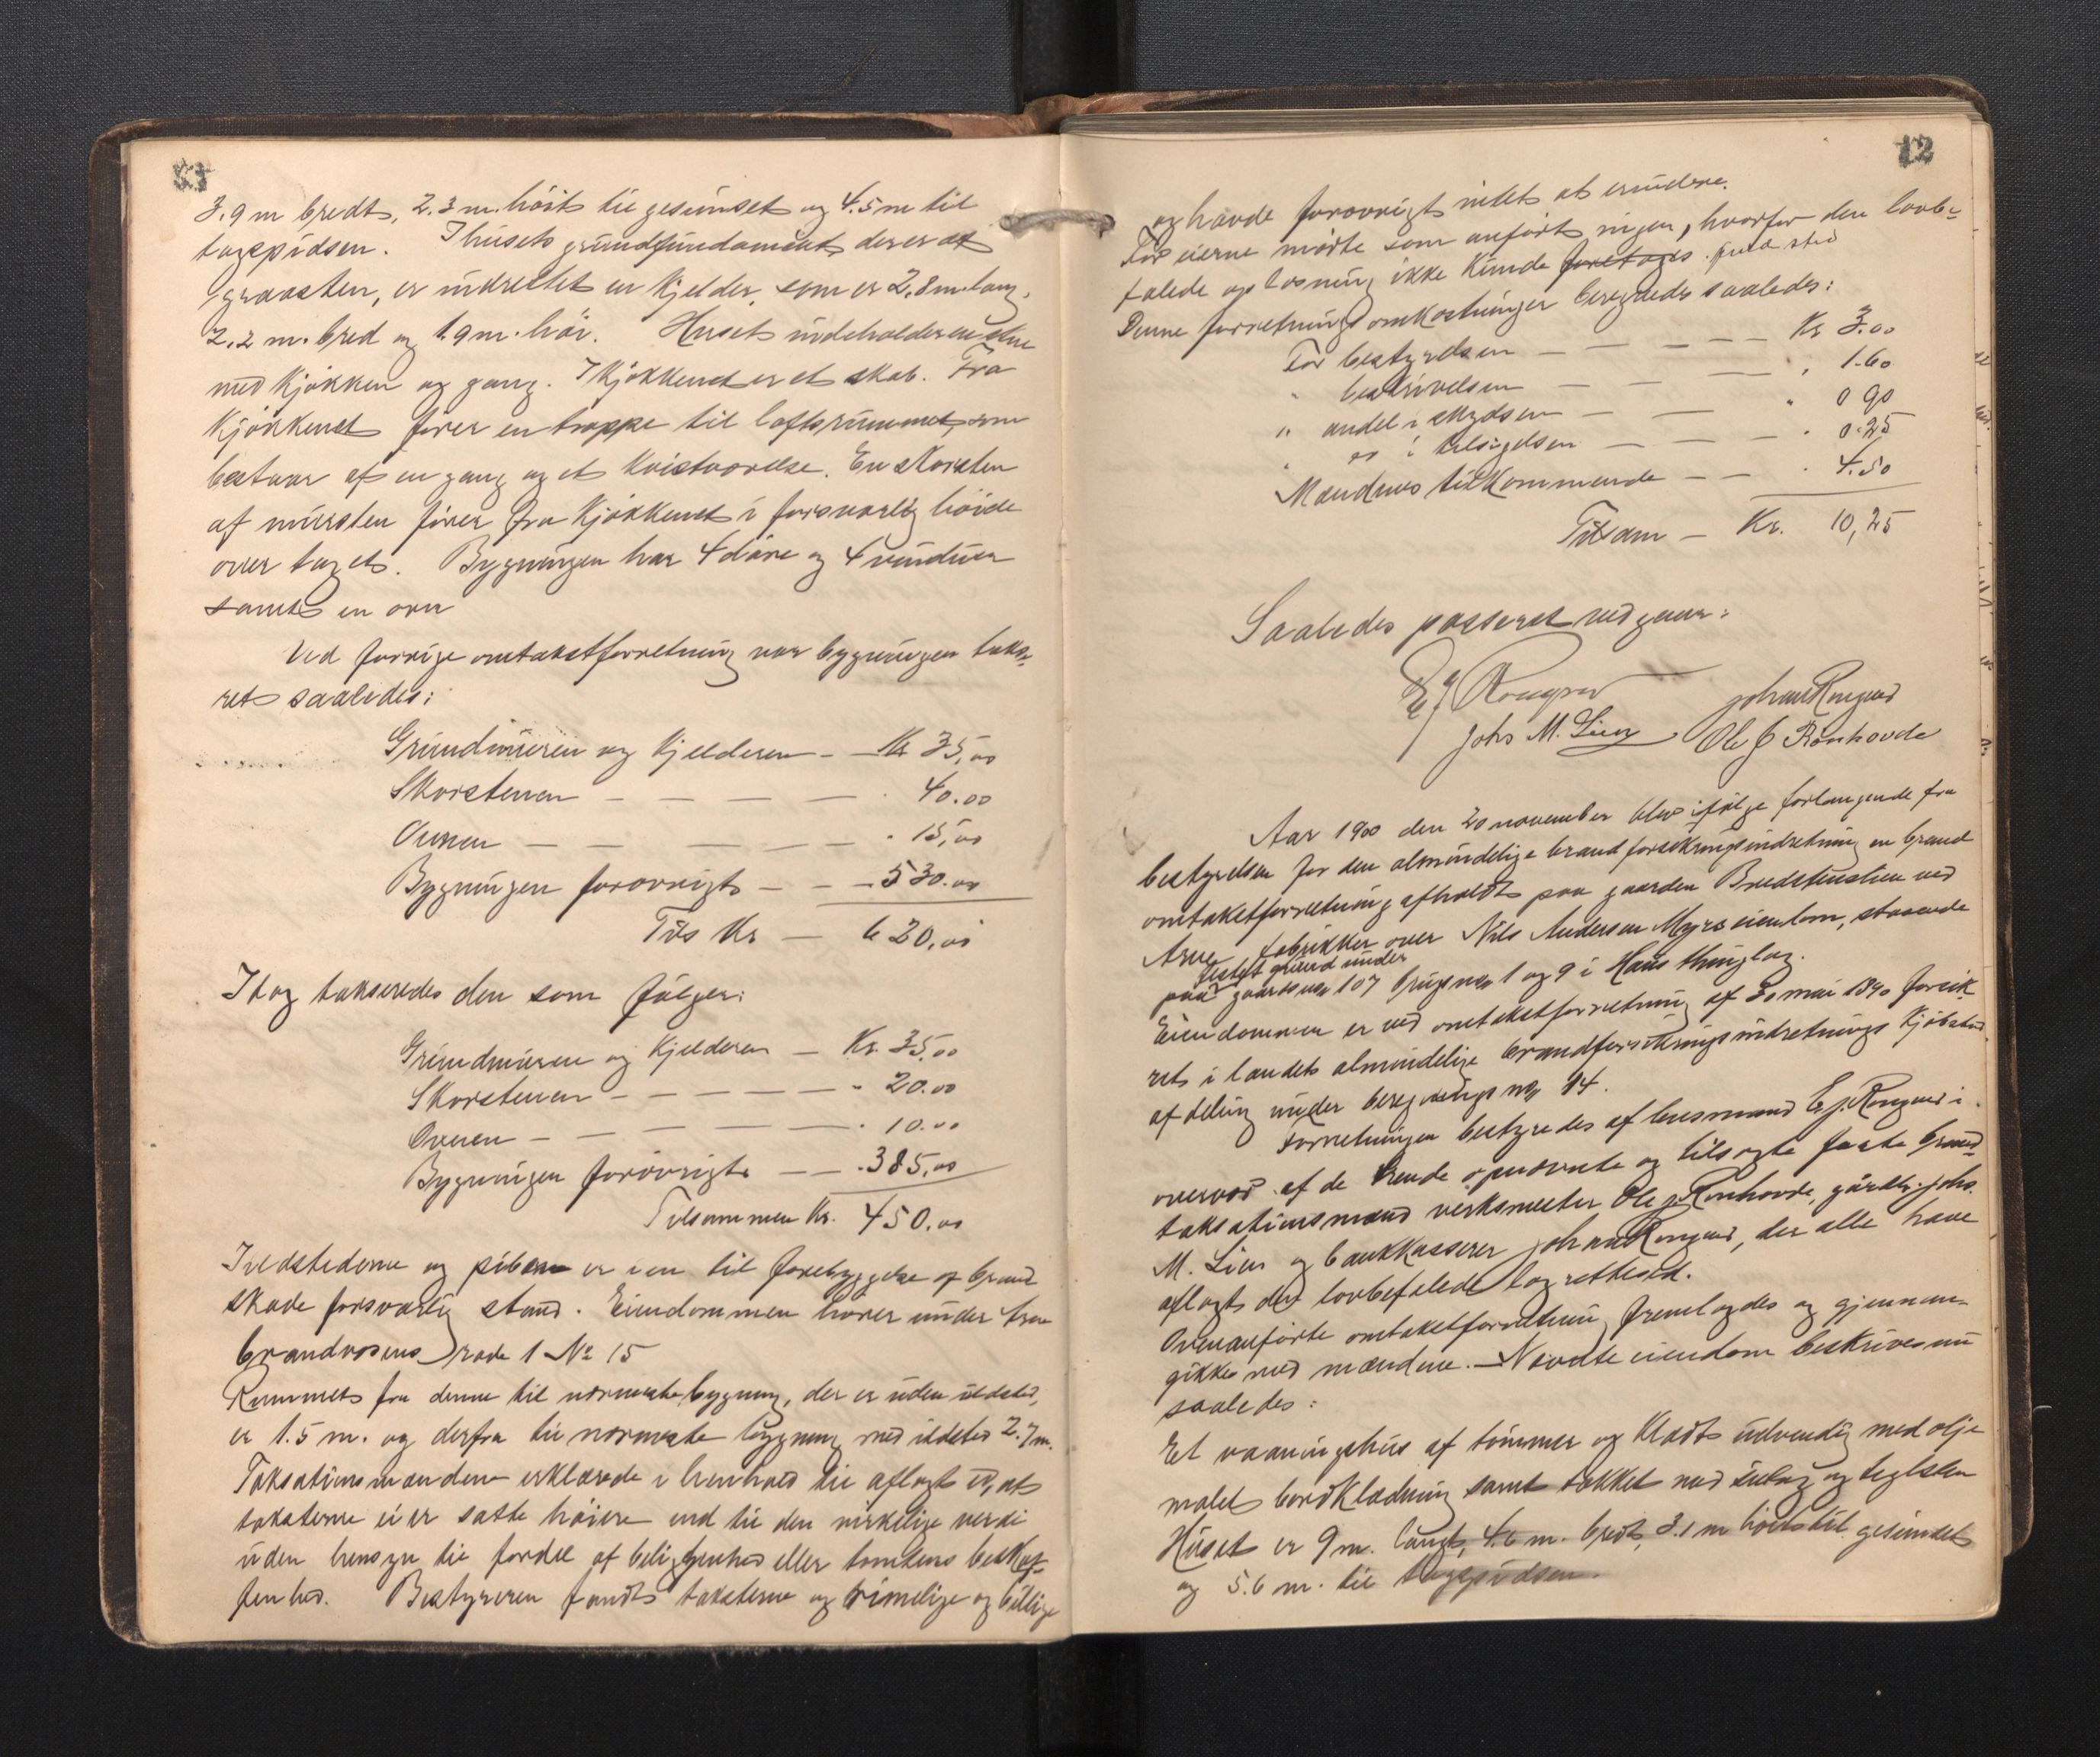 3.9 m bredt, 2.3 m. höit til gesimset og 4.5 m til
tagspidsen. I husets grundfundament der er af
graasten, er indrettet en Kjelder, som er 2,8 m. lang,
2.2 m. bred og 1.9 m. höi. Huset indeholder en stue
med Kjökken og gang. I Kjökkenet er et skab. Fra
Kjökkenet förer en trappe til loftsrummet, som
bestaar af en gang og et Kvistværelse. En Skorsten
af mursten förer fra Kjökkenet i forsvarlig höide
over taget. Bygningen har 4 döre og 4 vinduer
samt en ovn
Ved forrige omtakstforretning var bygningen takse-
ret saaledes:
Grundmuren og Kjelderen - Kr 35,00
Skorstenen — — — — " 40.00
Ovnen — — — — — " 15,00
Bygningen forøvrigt — — - 530.00
Tils Kr — 620,00
Idag takseredes den som følger:
Grundmuren og Kjelderen — Kr. 35.00
Skorstenen — — — — — " 20.00
Ovnen — — — — — . 10.00
Bygningen forövrigt — — . 385,00
Tilsammen Kr. 450,00
Ildstederne og piben er i en til forebyggelse af brand
skade forsvarlig stand. Eiendommen hører under Arne
brandvæsens rode 1 No 15
Rummet fra denne til nærmeste bygning, der er uden ildsted,
er 1.5 m. og derfra til nærmeste bygning med ildsted 2.7 m.
Taksationsmændene erklærede i henhold til aflagt ed, at
taksterne ei er satte höiere end til den virkelige verdi
uden hensyn til fordel af beliggenhed eller tomtens beskaf-
fenhed. Bestyreren fandt taksterne og rimelige og billige
12
og havde forøvrigt intet at erindre.
For eierne mødte som anført ingen, hvorfor den lovbe-
falede oplæsning ikke Kunde foretages. finde sted
Denne forretnings omkostninger beregnedes saaledes:
For bestyrelsen — — — — — Kr 3.00
" beskrivelsen — — — , 1.60
" andel i skydsen — — " 0 90
" do i tilsigelsen — — — . 0.25
Mændenes tilkommende — — . 4.50
Tilsam — Kr. 10,25
Saaledes passeret vidgaar:
E J Rongved Johan Rongved
Johs M. Lien Ole J Rönhovde
Aar 1900 den 20 november blev ifølge forlangende fra
bestyrelsen for den almindelige brandforsikringsindretning en brand
omtakstforretning afholdt paa gaarden Bredstenslien ved
Arne fabrikker over Nils Andersen Myrs eiendom, staaende
festet grund under
paa gaardsno 107 brugsno 1 og 9 i Haus thinglag.
Eiendommen er ved omtakstforretning af 30 mai 1890 forsik
ret i landets almindelige brandforsikringsindretnings Kjøbstad
afdeling under beregnings no 14.
Forretningen bestyredes af lensmand E. J. Rongved i
overvær af de trende opnævnte og tilsagte faste brand-
taksationsmænd verksmester Ole J. Rønhovde, gårdbr. Johs.
M. Lien og bankkasserer Johan Rongved, der alle have
aflagt den lovbefalede lagrettesed.
Ovenanførte omtakstforretning fremlagdes og gjennem-
gikkes med mændene. — Nævnte eiendom beskrives nu
saaledes:
Et vaaningshus af tömmer og klædt udvendig med olje
malet bordklædning samt tækket med indlæg og teglsten
Huset er 9 m. langt, 4.6 m. bredt, 3.1 m höit til gesimset
og 5.6 m. til tagspidsen.